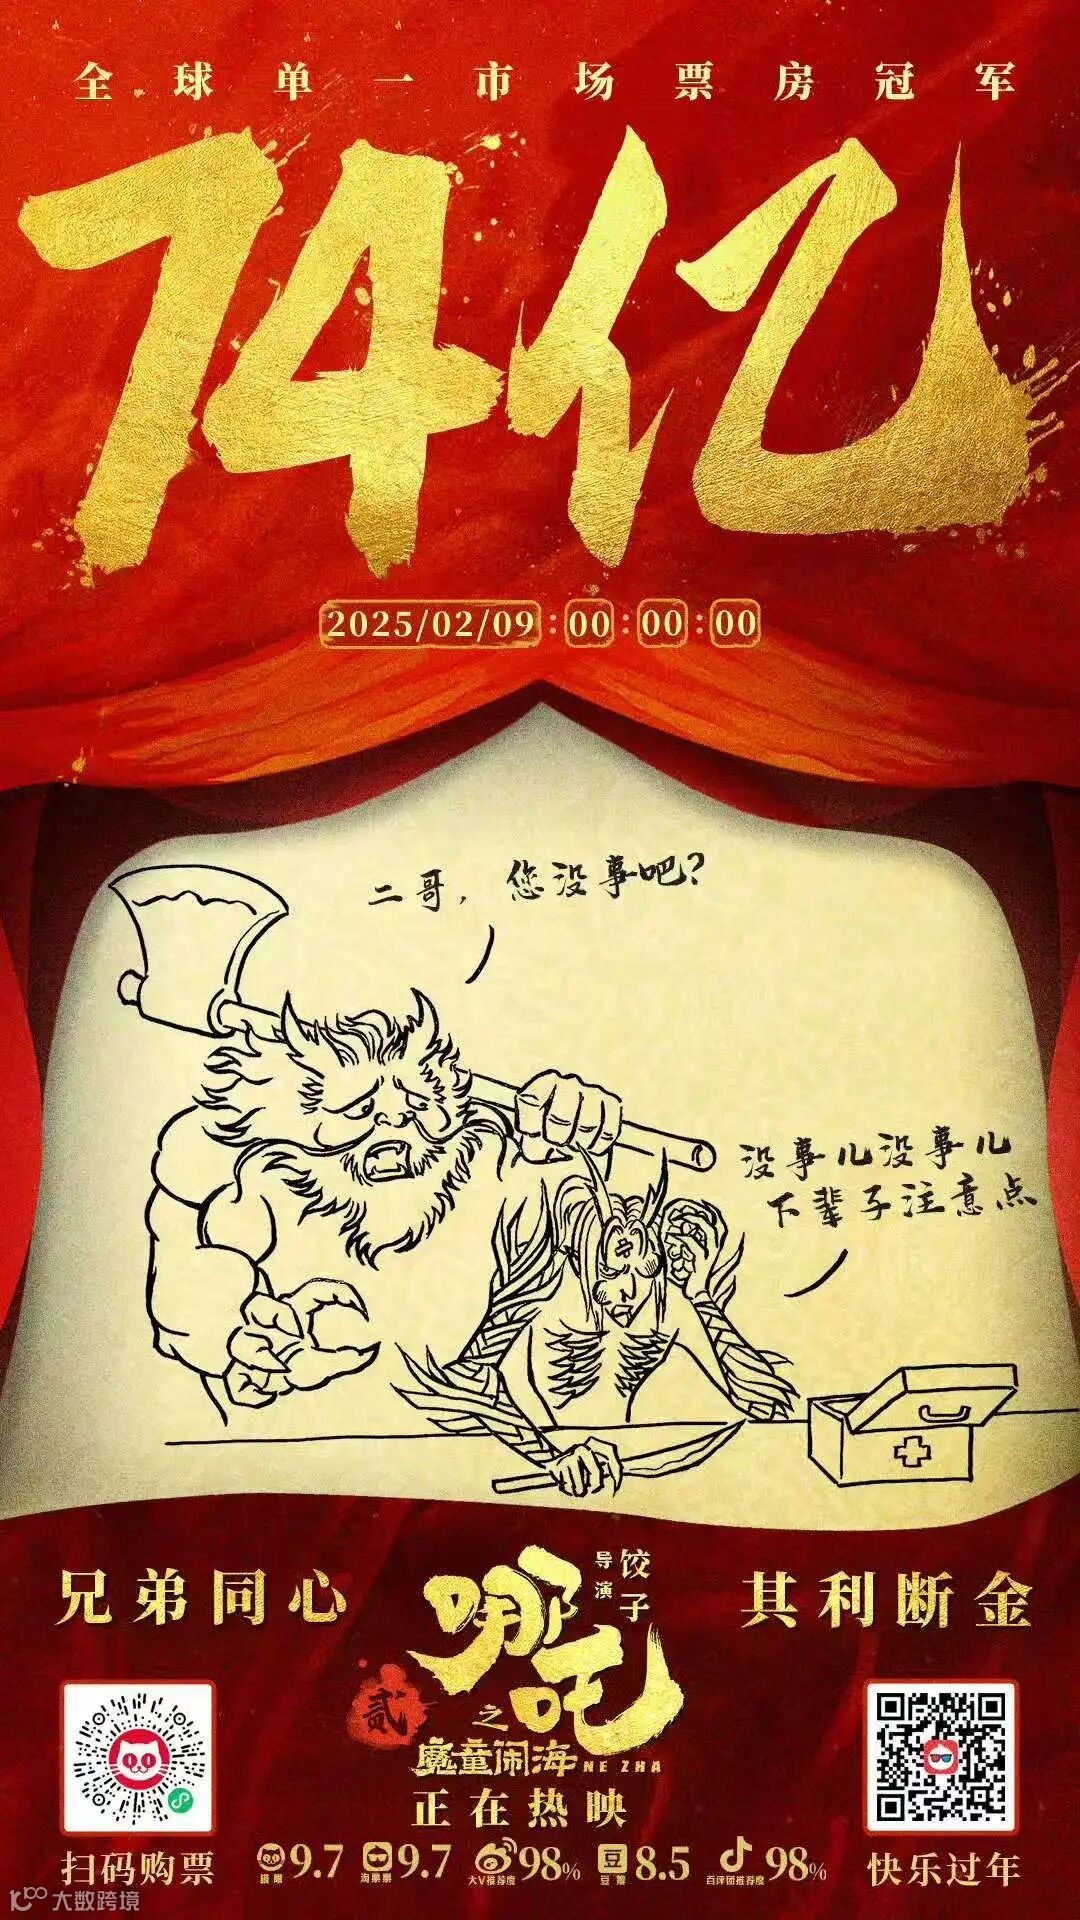 全球单一市场票房冠军
74亿
2025/02/09:00:00:00
二哥，您没事吧？
没事儿没事儿
下辈子注意点
兄弟同心
其利断金
导演 饺子
哪吒
贰
之
魔童闹海 NE ZHA
正在热映
猫眼 9.7 淘票票 9.7 大V推荐度 98% 豆瓣 8.5 百评团推荐度 98%
扫码购票
快乐过年
大数跨境